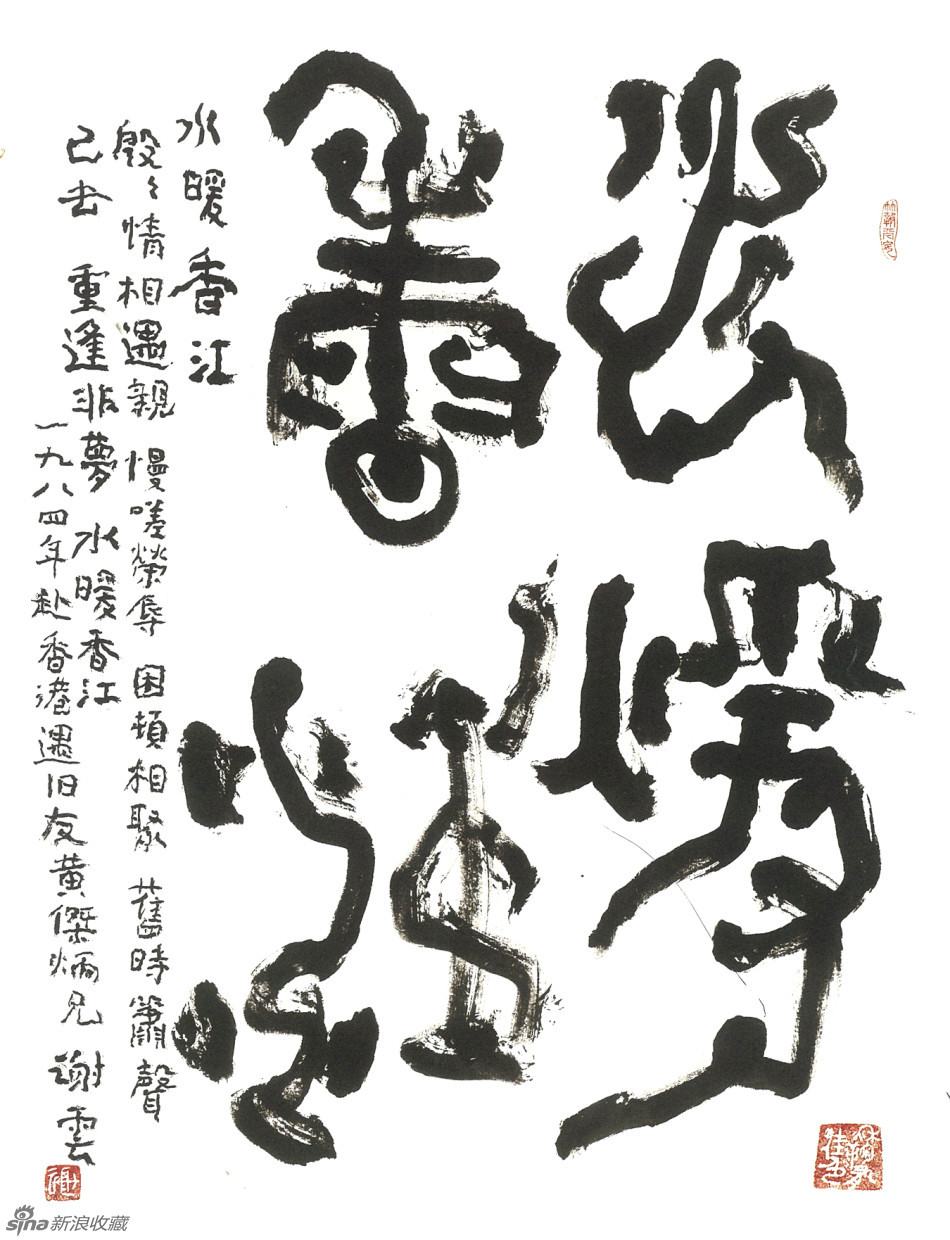 水暖香江
水暖香江
殷〻情相遇親 慢嗟榮辱 困頓相聚 舊時簫聲
已去 重逢非夢 水暖香江
一九八四年赴香港遇旧友黄傑炳兄 謝雲
sina新浪收藏